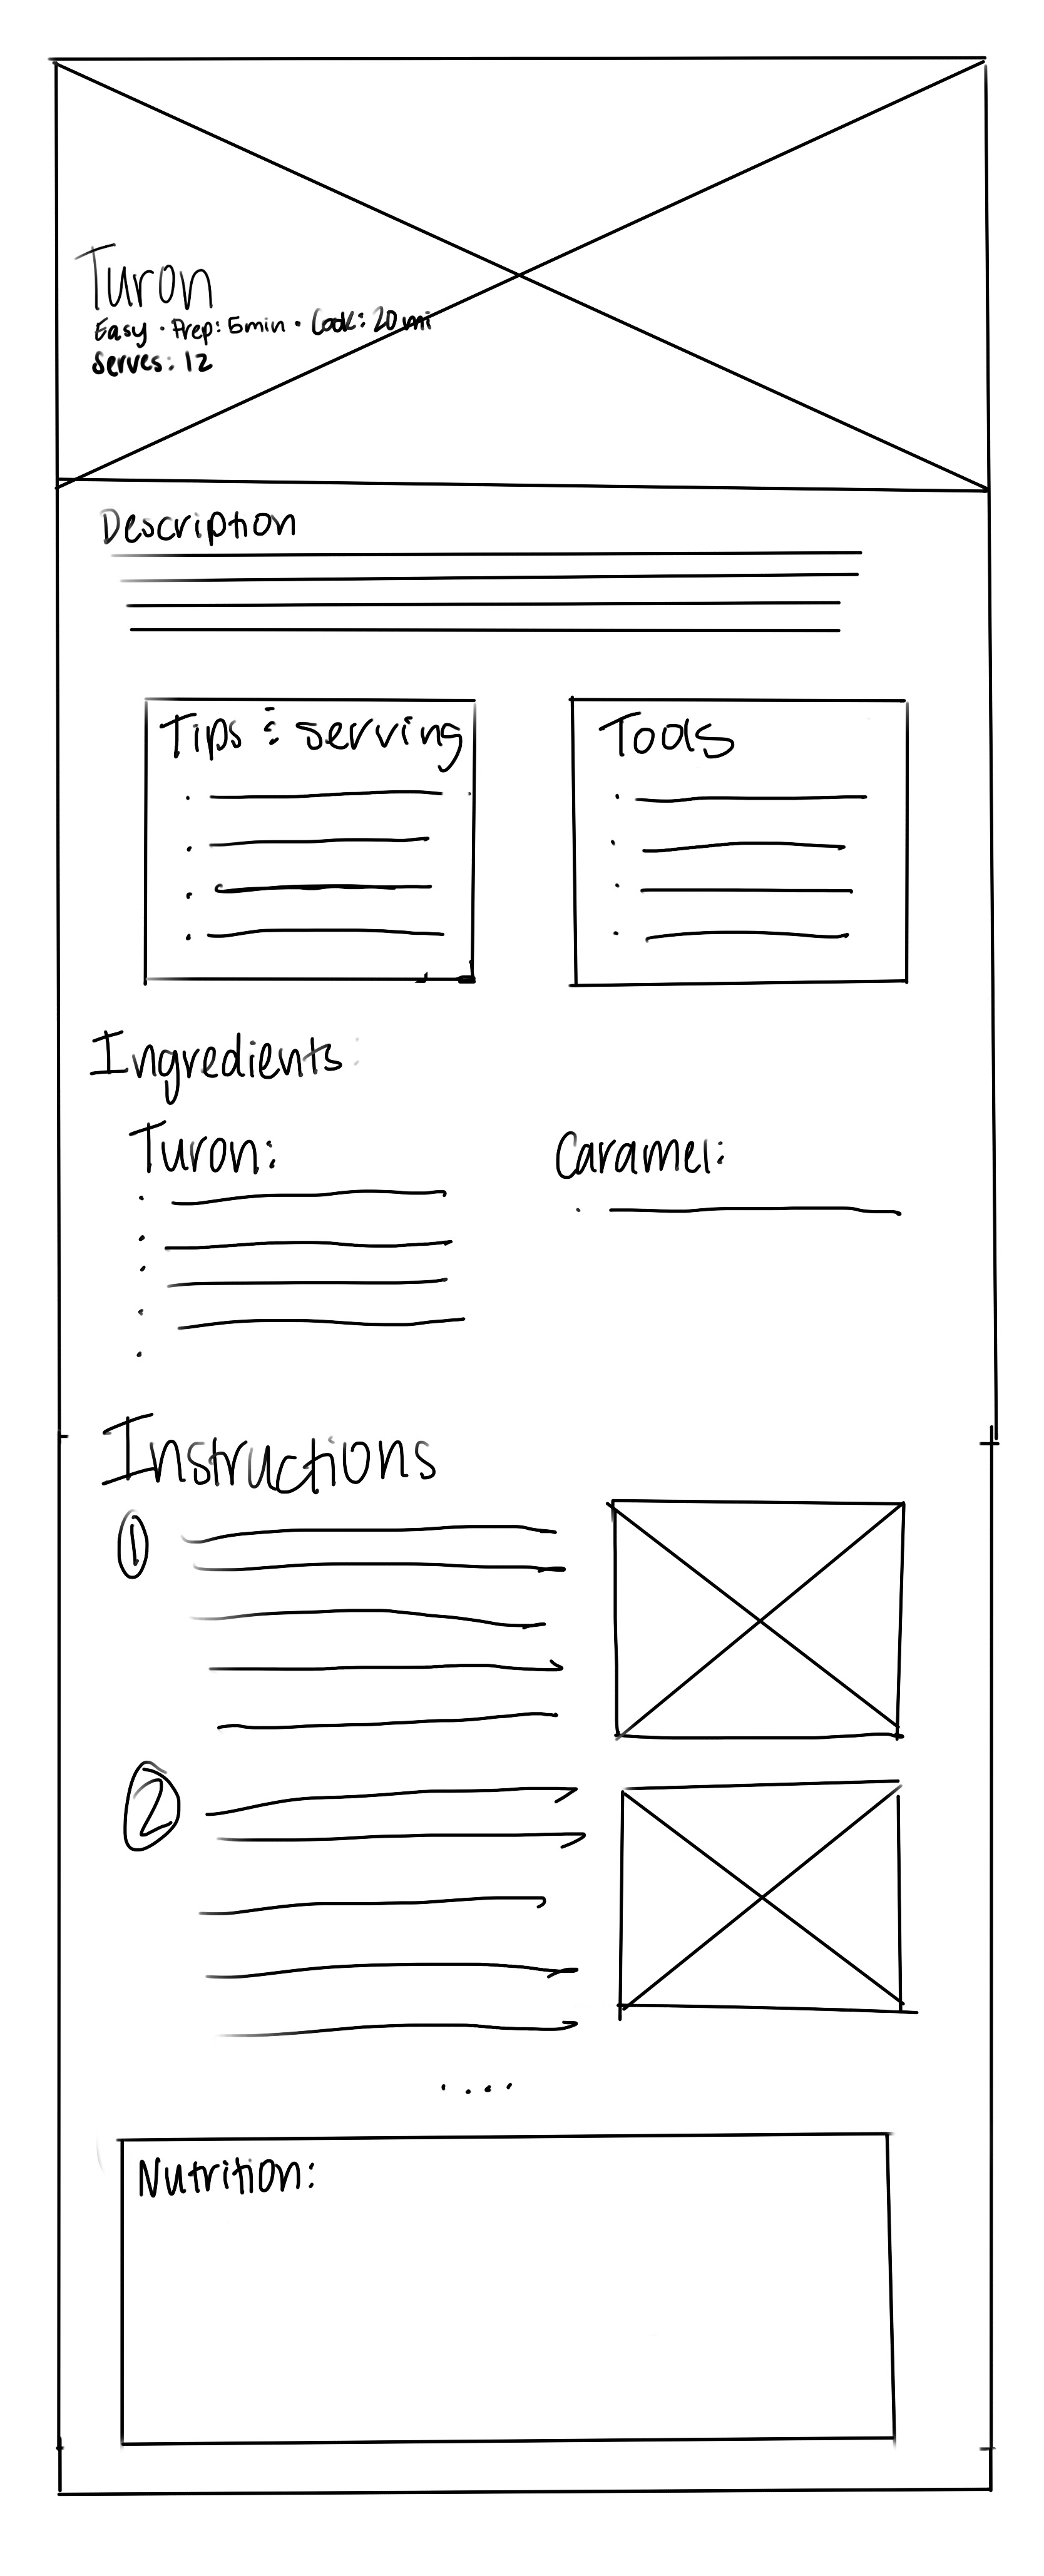 Turon
Easy · Prep: 5min · Cook: 20 mi
Serves: 12
Description
Tips & serving
Tools
Ingredients:
Turon:
Caramel:
Instructions
1
2
....
Nutrition: